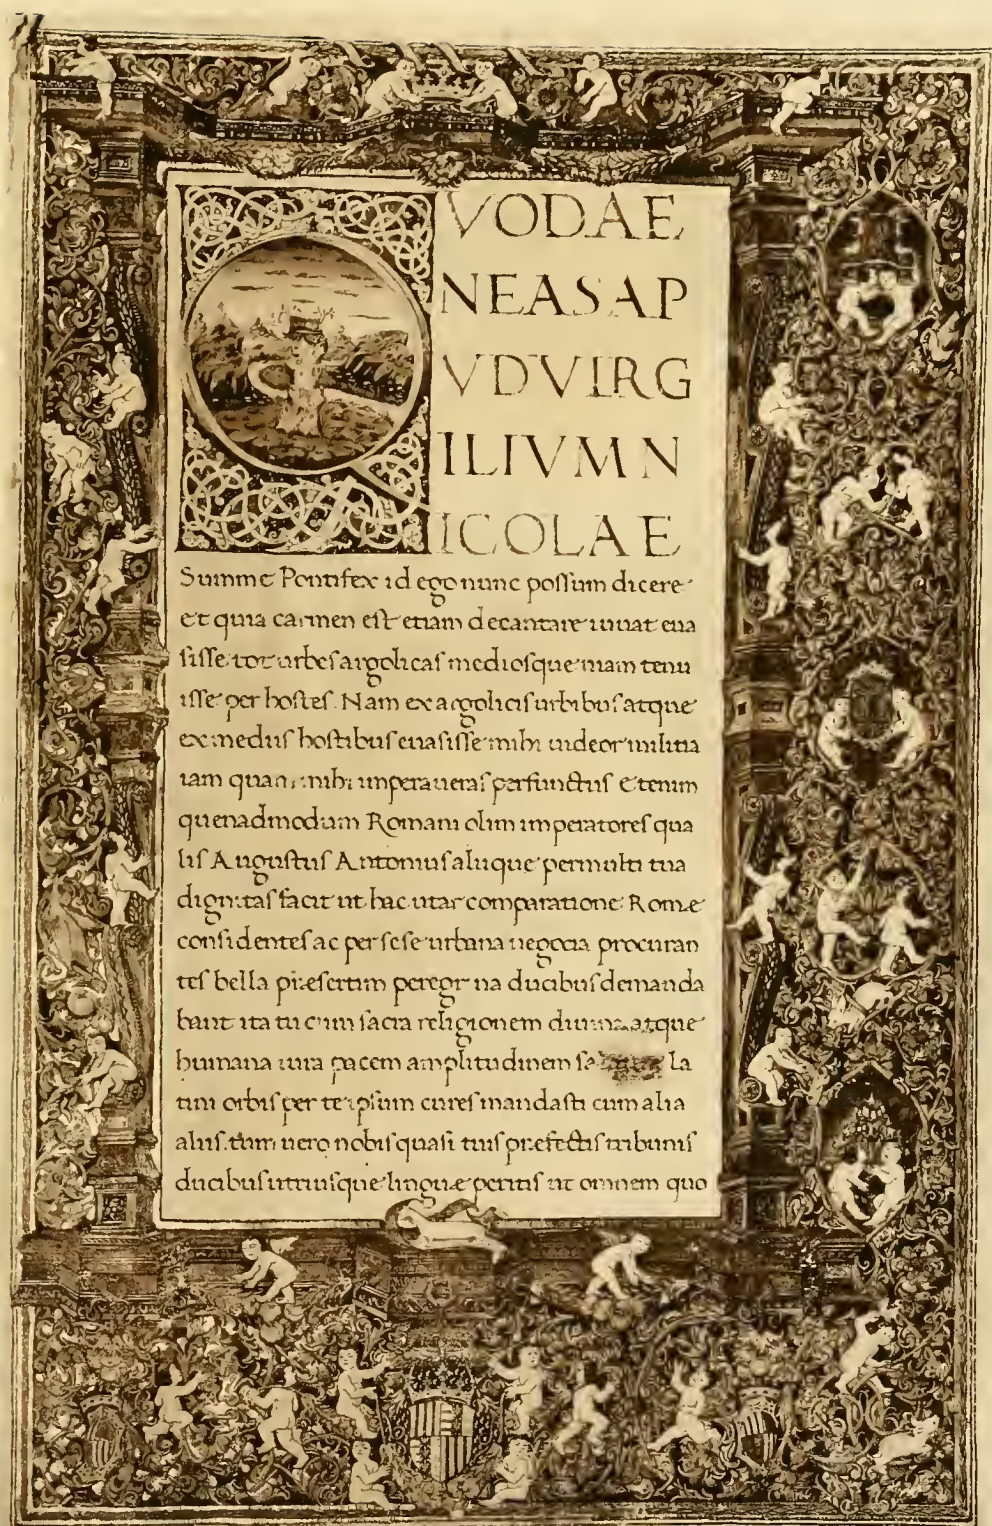 QVODAE
NEASAP
VDVIRG
ILIVMN
ICOLAE
Summe Pontifex id ego nunc possum dicere
et quia carmen est etiam decantare iuuat eua
sisse tot urbes argolicas mediosque uiam tenu
isse per hostes. Nam ex argolicis urbibus atque
ex mediis hostibus euasisse mihi uideor militia
iam quam mihi imperaueras perfunctus Etenim
quenadmodum Romani olim imperatores qua
lis Augustus Antonius aliique permulti tua
dignitas facit ut hac utar comparatione Romæ
considentes ac per sese urbana negocia procuran
tes bella præsertim peregrina ducibus demanda
bant ita tu cum sacra religionem diuina atque
humana iura pacem amplitudinem La
tini orbis per te ipsum cures mandasti cum alia
aliis tum uero nobis quasi tuis præfectis tribunis
ducibus utriusque linguæ peritis ut omnem quo